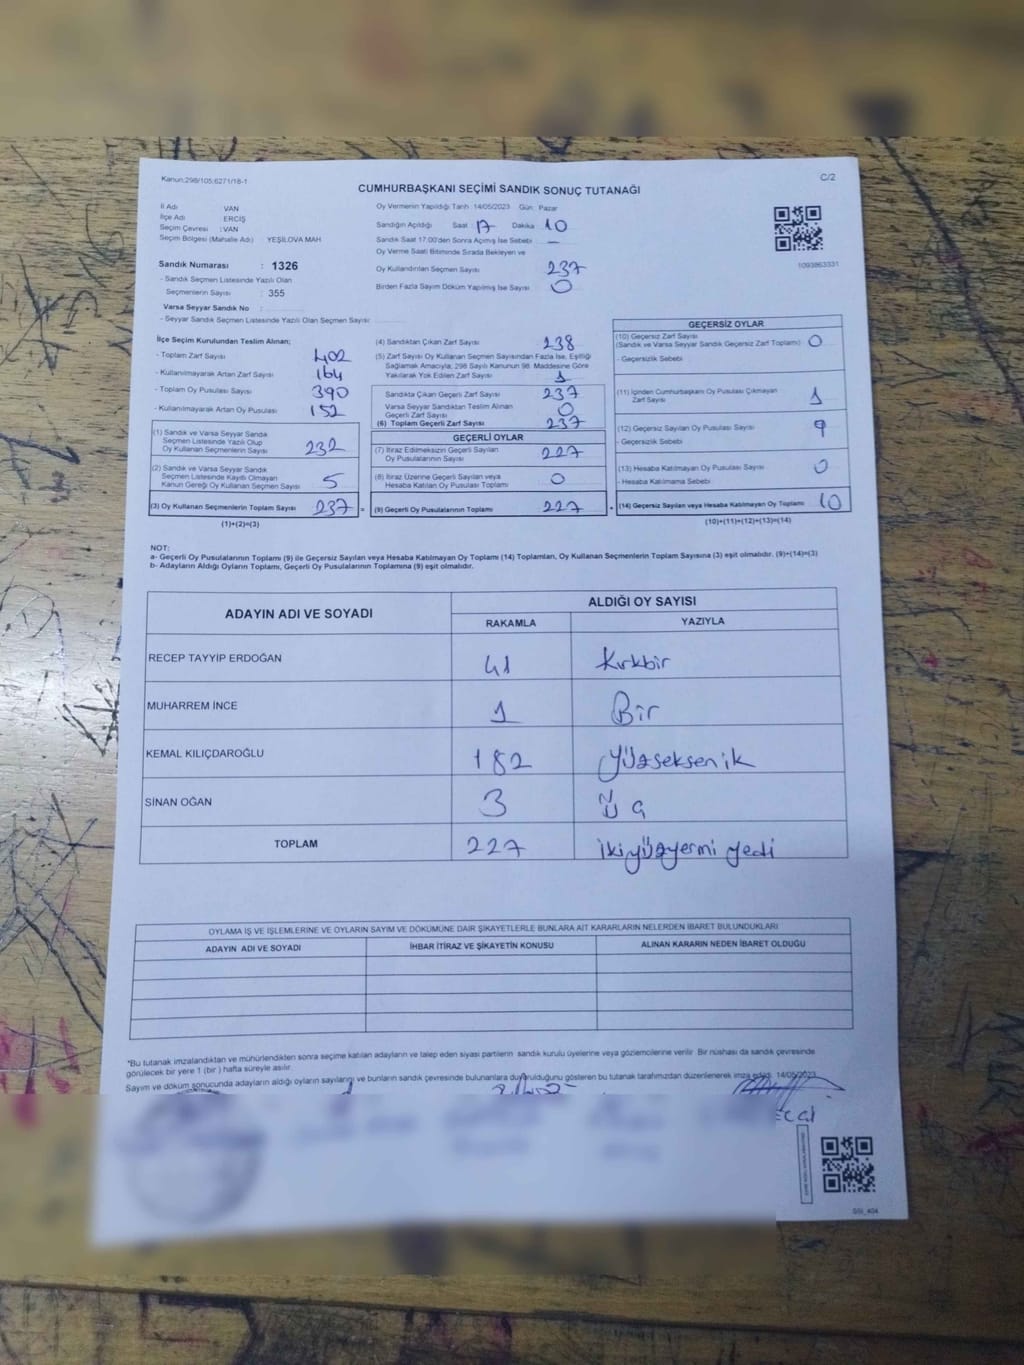 Kanun:298/105;6271/18-1
C/2
CUMHURBAŞKANI SEÇİMİ SANDIK SONUÇ TUTANAĞI
İl Adı VAN
İlçe Adı ERCİŞ
Seçim Çevresi :VAN
Seçim Bölgesi (Mahalle Adı) YEŞİLOVA MAH
Sandık Numarası : 1326
- Sandık Seçmen Listesinde Yazılı Olan
Seçmenlerin Sayısı : 355
Varsa Seyyar Sandık No :
- Seyyar Sandık Seçmen Listesinde Yazılı Olan Seçmen Sayısı:
Oy Vermenin Yapıldığı Tarih :14/05/2023 Gün: Pazar
Sandığın Açıldığı Saat : 17 Dakika 10
Sandık Saat 17.00'den Sonra Açımış İse Sebebi : —
Oy Verme Saati Bitiminde Sırada Bekleyen ve
Oy Kullandırılan Seçmen Sayısı 237
Birden Fazla Sayım Döküm Yapılmış İse Sayısı 0
1093863331
İlçe Seçim Kurulundan Teslim Alınan;
- Toplam Zarf Sayısı 402
- Kullanılmayarak Artan Zarf Sayısı 164
- Toplam Oy Pusulası Sayısı 390
- Kullanılmayarak Artan Oy Pusulası 152
(1) Sandık ve Varsa Seyyar Sandık
Seçmen Listesinde Yazılı Olup
Oy Kullanan Seçmenlerin Sayısı 232
(2) Sandık ve Varsa Seyyar Sandık
Seçmen Listesinde Kayıtlı Olmayan
Kanun Gereği Oy Kullanan Seçmen Sayısı 5
(3) Oy Kullanan Seçmenlerin Toplam Sayısı 237 =
(1)+(2)=(3)
(4) Sandıktan Çıkan Zarf Sayısı 238
(5) Zarf Sayısı Oy Kullanan Seçmen Sayısından Fazla İse, Eşitliği
Sağlamak Amacıyla; 298 Sayılı Kanunun 98. Maddesine Göre
Yakılarak Yok Edilen Zarf Sayısı 1
Sandıkta Çıkan Geçerli Zarf Sayısı 237
Varsa Seyyar Sandıktan Teslim Alınan
Geçerli Zarf Sayısı 0
(6) Toplam Geçerli Zarf Sayısı 237
GEÇERLİ OYLAR
(7) İtiraz Edilmeksizin Geçerli Sayılan
Oy Pusulalarının Sayısı 227
(8) İtiraz Üzerine Geçerli Sayılan veya
Hesaba Katılan Oy Pusulası Toplamı 0
(9) Geçerli Oy Pusulalarının Toplamı 227 +
GEÇERSİZ OYLAR
(10) Geçersiz Zarf Sayısı
(Sandık ve Varsa Seyyar Sandık Geçersiz Zarf Toplamı) 0
- Geçersizlik Sebebi
(11) İçinden Cumhurbaşkanı Oy Pusulası Çıkmayan
Zarf Sayısı 1
(12) Geçersiz Sayılan Oy Pusulası Sayısı 9
- Geçersizlik Sebebi
(13) Hesaba Katılmayan Oy Pusulası Sayısı 0
- Hesaba Katılmama Sebebi
(14) Geçersiz Sayılan veya Hesaba Katılmayan Oy Toplamı 10
(10)+(11)+(12)+(13)=(14)
NOT:
a- Geçerli Oy Pusulalarının Toplamı (9) ile Geçersiz Sayılan veya Hesaba Katılmayan Oy Toplamı (14) Toplamları, Oy Kullanan Seçmenlerin Toplam Sayısına (3) eşit olmalıdır. (9)+(14)=(3)
b- Adayların Aldığı Oyların Toplamı, Geçerli Oy Pusulalarının Toplamına (9) eşit olmalıdır.
ADAYIN ADI VE SOYADI
ALDIĞI OY SAYISI
RAKAMLA YAZIYLA
RECEP TAYYİP ERDOĞAN 41 Kırkbir
MUHARREM İNCE 1 Bir
KEMAL KILIÇDAROĞLU 182 Yüzseksenik
SİNAN OĞAN 3 Üç
TOPLAM 227 ikiyüzyermi yedi
OYLAMA İŞ VE İŞLEMLERİNE VE OYLARIN SAYIM VE DÖKÜMÜNE DAİR ŞİKAYETLERLE BUNLARA AİT KARARLARIN NELERDEN İBARET BULUNDUKLARI
ADAYIN ADI VE SOYADI İHBAR İTİRAZ VE ŞİKAYETİN KONUSU ALINAN KARARIN NEDEN İBARET OLDUĞU
*Bu tutanak imzalandıktan ve mühürlendikten sonra seçime katılan adayların ve talep eden siyasi partilerin sandık kurulu üyelerine veya gözlemcilerine verilir. Bir nüshası da sandık çevresinde
görülecek bir yere 1 ( bir ) hafta süreyle asılır.
Sayım ve döküm sonucunda adayların aldığı oyların sayılarını ve bunların sandık çevresinde bulunanlara duyurulduğunu gösteren bu tutanak tarafımızdan düzenlenerek imza edildi. 14/05/2023